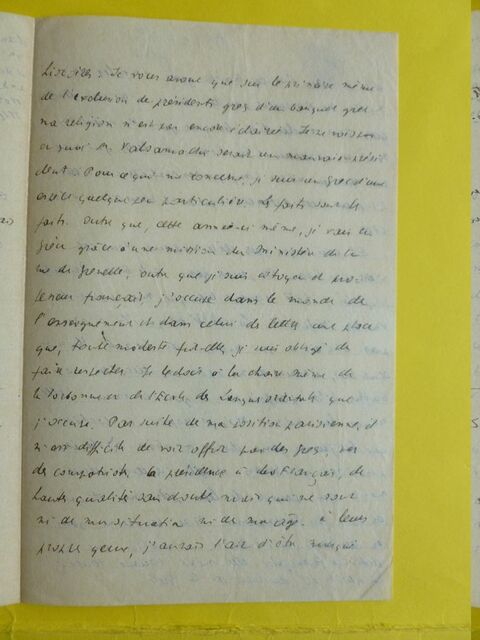 Lisez-les. Je vous avoue que sur le principe même
de l'exclusion de présidents grecs d'un banquet grec
ma religion n'est pas encore éclairée. Je ne vois pas
en quoi M. Valsamachi serait un mauvais prési
dent. Pour ce qui me concerne, je suis un Grec d'une
espèce quelque peu particulière. Les faits sont les
faits. Outre que, cette année-ci même, je vais en
Grèce grâce à une mission du Ministère de la
rue de Grenelle, outre que je suis citoyen et pro
fesseur français j'occupe dans le monde de
l'enseignement et dans celui des lettres une place
que, toute modeste fut-elle, je suis obligé de
faire respecter. Je le dois à la chaire même de
la Sorbonne et de l'Ecole des Langues orientales que
j'occupe. Par suite de ma position parisienne, il
m'est difficile de voir offrir par des Grecs,
des compatriotes la présidence à des Français, de
haute qualité sans doute mais qui ne sont
ni de ma situation ni de mon âge. à leurs
propres yeux, j'aurais l'air d'être